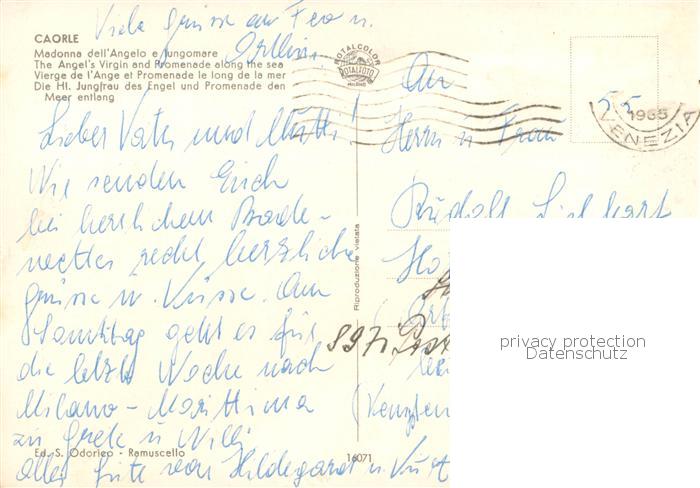 Viele Grüsse an Fea u.
CAORLE
Madonna dell'Angelo e lungomare
The Angel's Virgin and Promenade along the sea
Vierge de l'Ange et Promenade le long de la mer
Die Hl. Jungfrau des Engel und Promenade den
Meer entlang
ROTALCOLOR
ROTALFOTO
MILANO
1965
VENEZIA
Lieber Vater und Mutti!
Wir senden Euch
bei herrlichem Bade-
wetter recht herzliche
Grüsse u. Küsse. Am
Samstag geht es für
die letzte Woche nach
Milano-Marittima
zu Grete u Willi
alles gute von Hildegard u. Kurt
Ed. S. Odorico - Ramuscello
16071
Riproduzione vietata
An
Herrn u Frau
Rudolf
897
(Kempten
privacy protection
Datenschutz